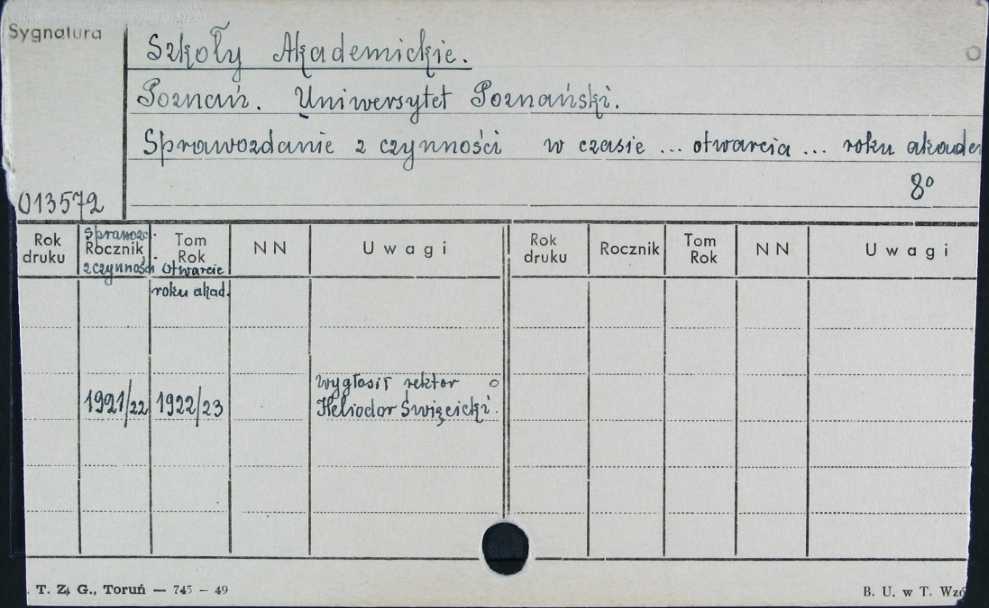 Sygnatura
Szkoły Akademickie.
Poznań. Uniwersytet Poznański.
Sprawozdanie z czynności w czasie ... otwarcia ... roku akade
8°
013572
Rok druku
Sprawozd. Rocznik z czynności
Tom Rok Otwarcie roku akad.
NN
Uwagi
Rok druku
Rocznik
Tom Rok
NN
Uwagi
wygłosił rektor
1921/22 1922/23 Heliodor Święcicki.
. T. Z. G., Toruń — 745 — 49
B. U. w T. Wzó